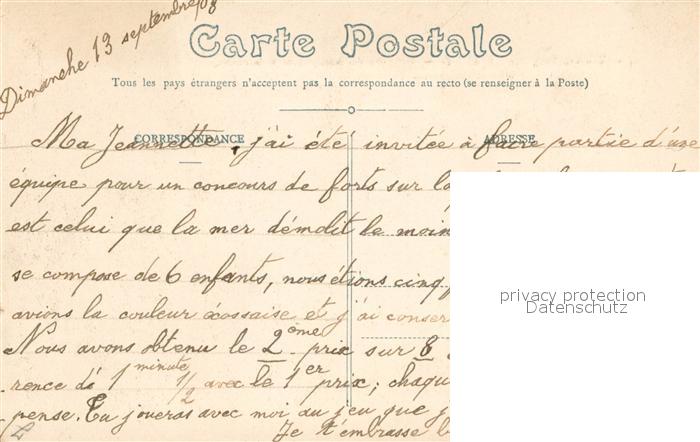 Dimanche 13 septembre 08
Carte Postale
Tous les pays étrangers n'acceptent pas la correspondance au recto (se renseigner à la Poste)
CORRESPONDANCE
ADRESSE
Ma Jeannette, j'ai été invitée à faire partie d'une
équipe pour un concours de forts sur la
est celui que la mer démolit le moin
se compose de 6 enfants, nous étions cinq
avions la couleur écossaise et j'ai conser
Nous avons obtenu le 2ème prix sur 8
rence de 1 minute 1/2 avec le 1er prix; chaqu
pense. Tu joueras avec moi au jeu que j
Je t'embrasse b
privacy protection
Datenschutz